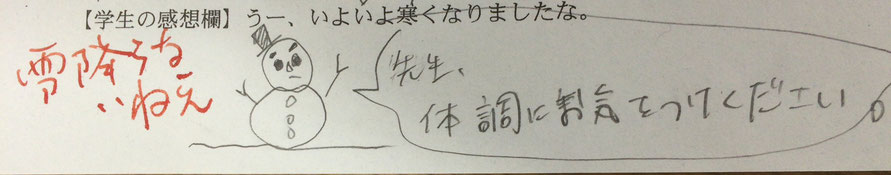 【学生の感想欄】うー、いよいよ寒くなりましたな。
雪降らな
いねえ
先生、
体調にお気をつけください。